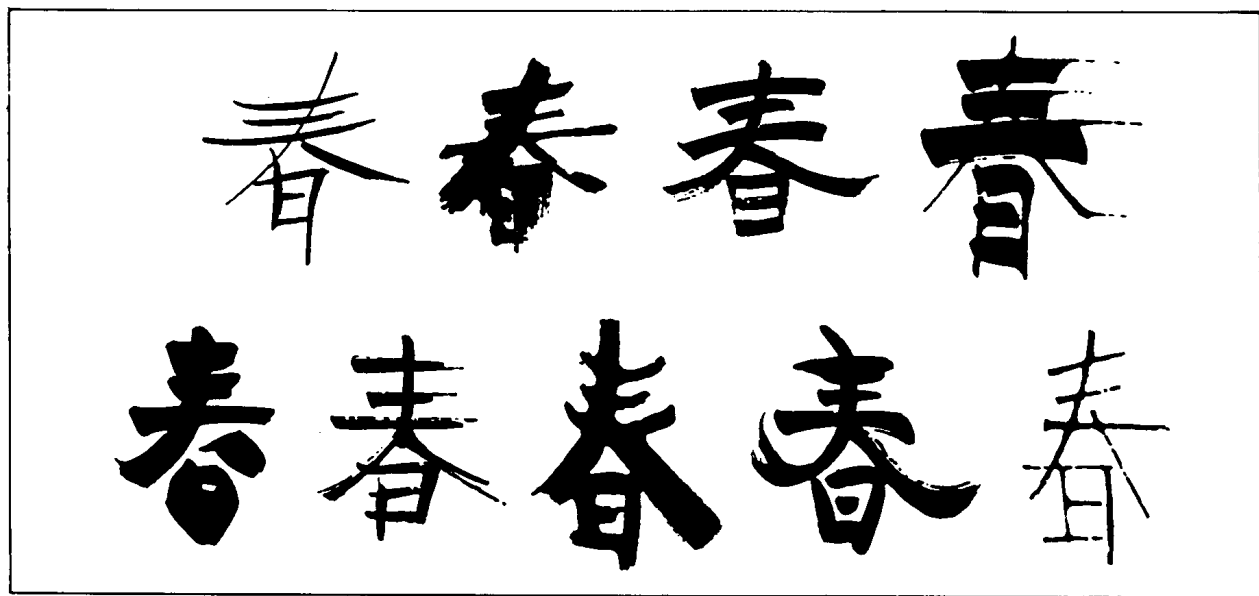 春 春 春 春
春 春 春 春 春